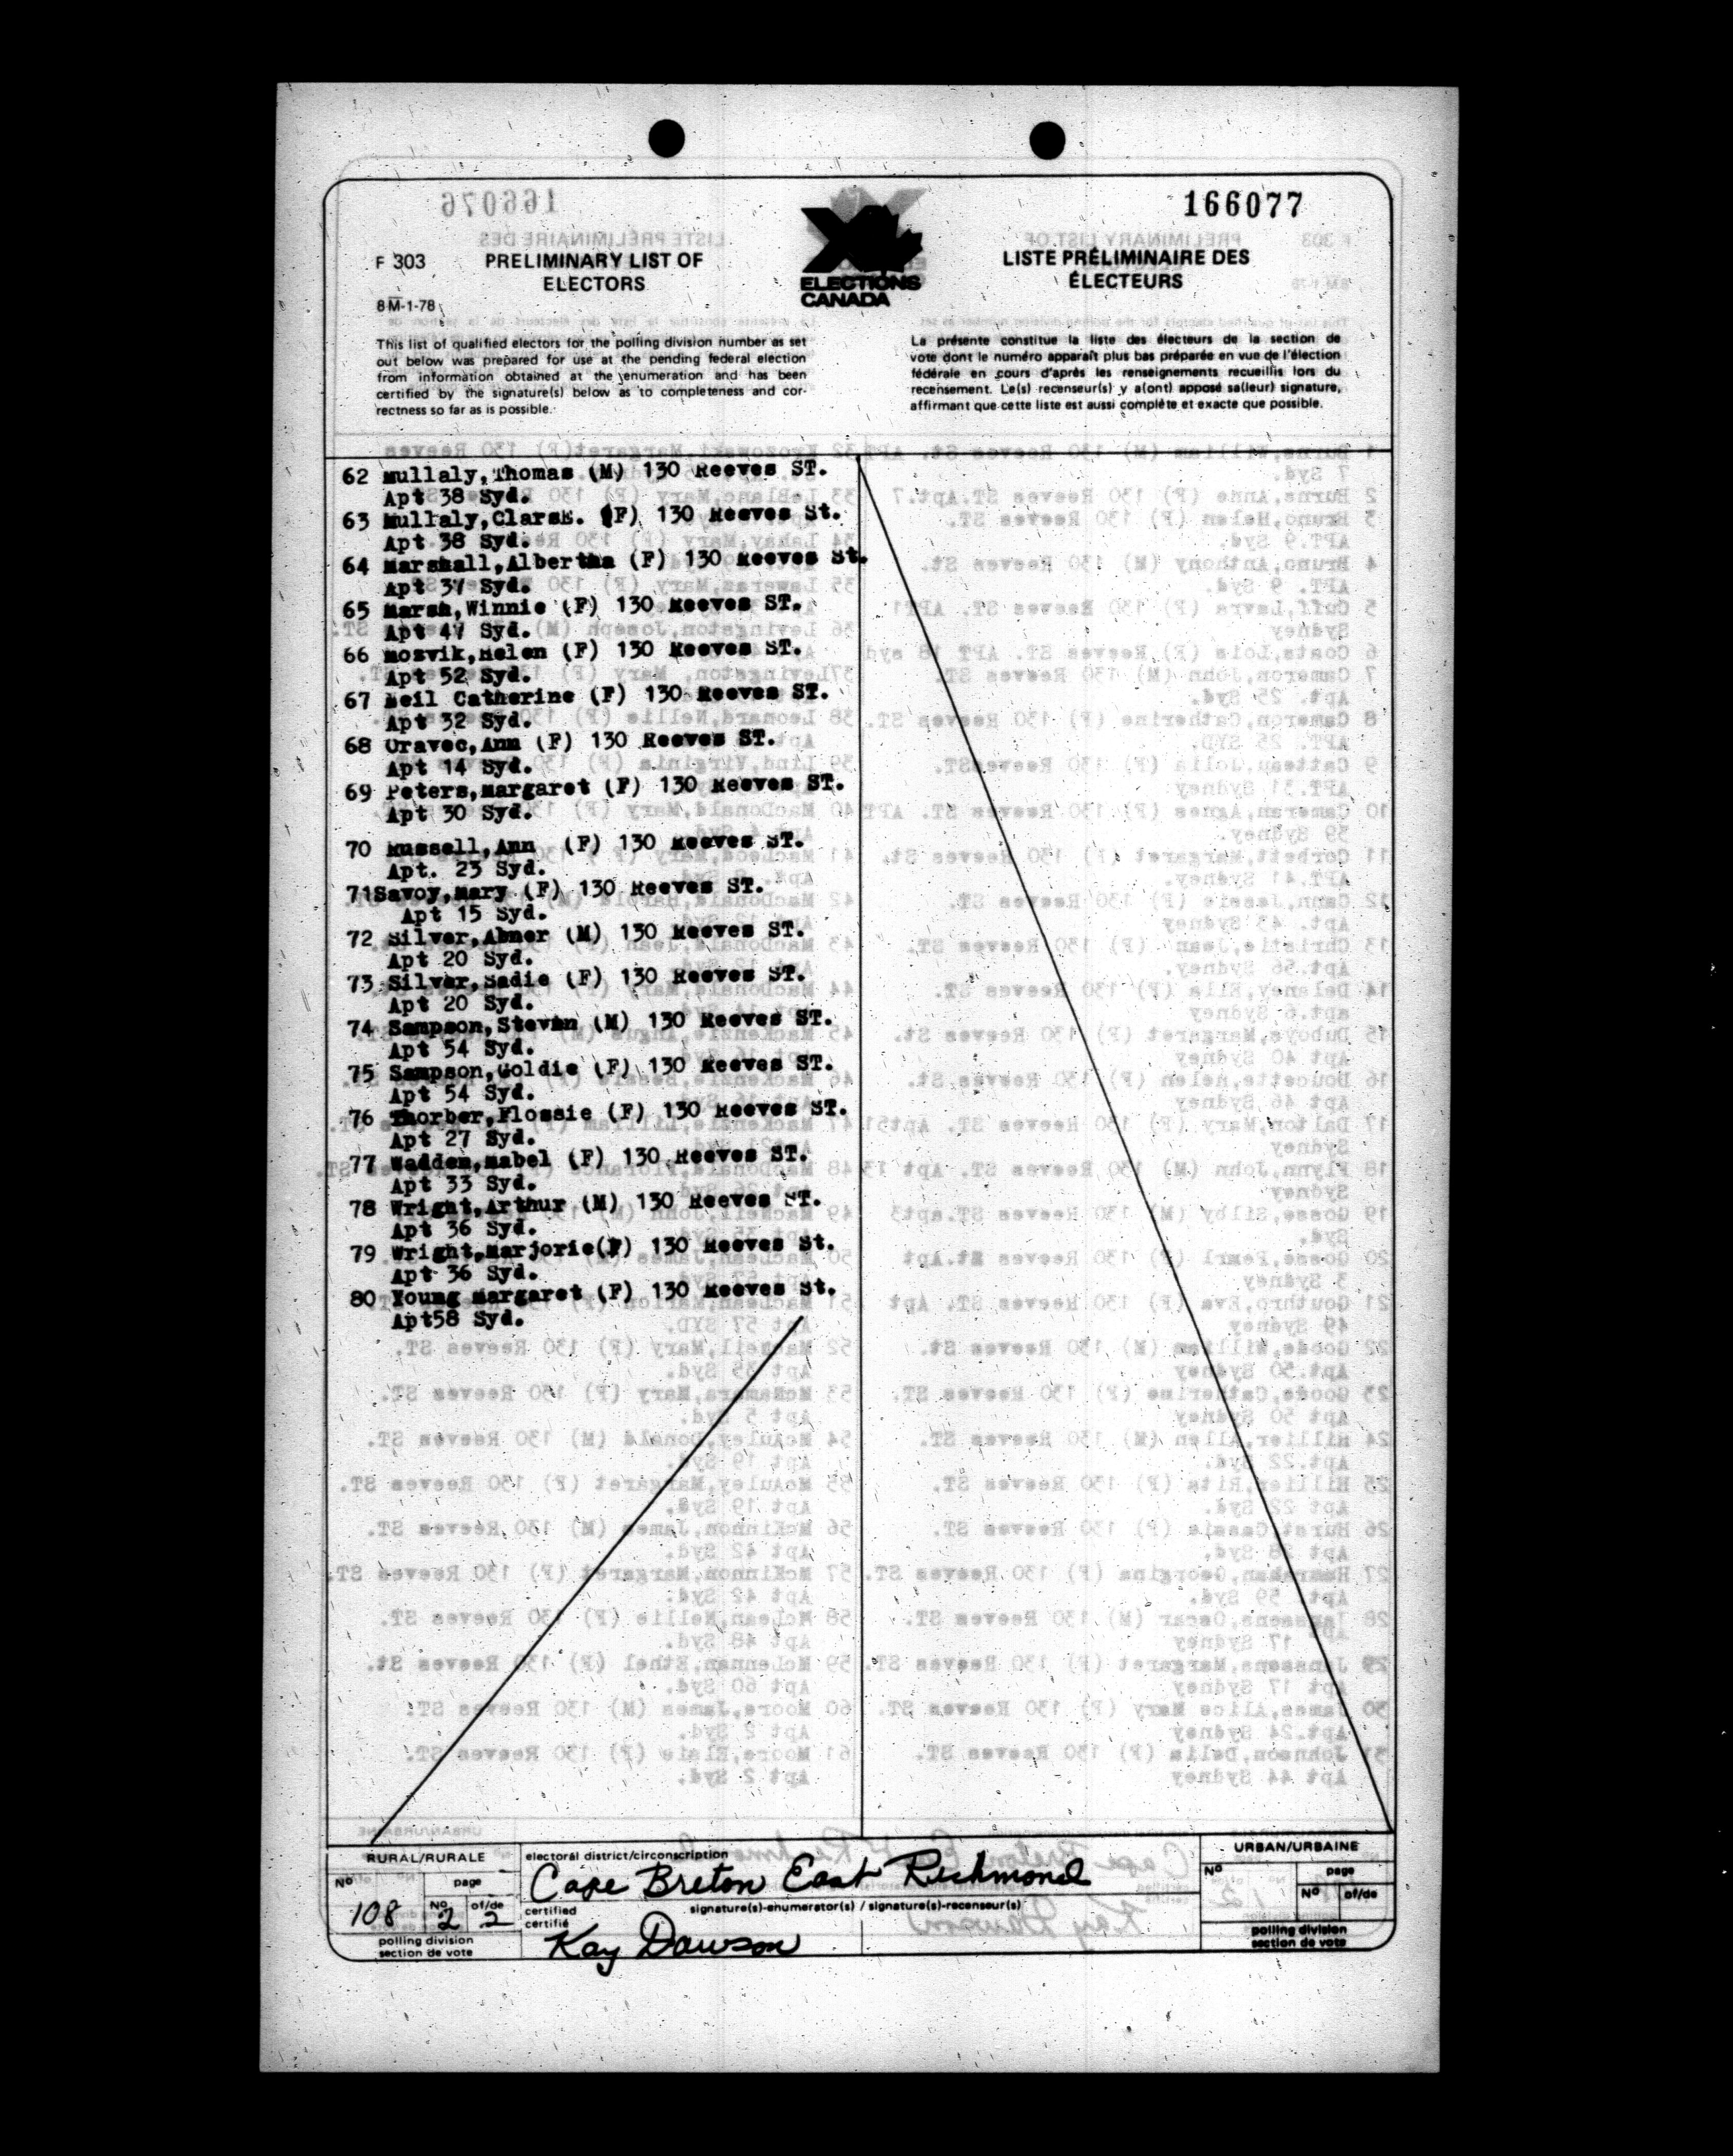 166077
F 303
PRELIMINARY LIST OF
ELECTORS
8 M-1-78
ELECTIONS
CANADA
LISTE PRÉLIMINAIRE DES
ÉLECTEURS
This list of qualified electors for the polling division number as set
out below was prepared for use at the pending federal election
from information obtained at the enumeration and has been
certified by the signature(s) below as to completeness and cor-
rectness so far as is possible.
La présente constitue la liste des électeurs de la section de
vote dont le numéro apparaît plus bas préparée en vue de l'élection
fédérale en cours d'après les renseignements recueillis lors du
recensement. Le(s) recenseur(s) y a(ont) apposé sa(leur) signature,
affirmant que cette liste est aussi complète et exacte que possible.
62 Mullaly,Thomas (M) 130 Reeves ST.
Apt 38 Syd.
63 Mullaly, (F) 130 Reeves St.
Apt 38 Syd.
64 Marshall,Albertha (F) 130 Reeves St.
Apt 37 Syd.
65 Marsh,Winnie (F) 130 Reeves ST.
Apt 47 Syd.
66 Mosvik,Helen (F) 130 Reeves ST.
Apt 52 Syd.
67 Neil Catherine (F) 130 Reeves ST.
Apt 32 Syd.
68 Oravec,Ann (F) 130 Reeves ST.
Apt 14 Syd.
69 Peters,Margaret (F) 130 Reeves ST.
Apt 30 Syd.
70 Russell,Ann (F) 130 Reeves ST.
Apt. 23 Syd.
71Savoy,Mary (F) 130 Reeves ST.
Apt 15 Syd.
72 Silver,Abner (M) 130 Reeves ST.
Apt 20 Syd.
73 Silver,Sadie (F) 130 Reeves ST.
Apt 20 Syd.
74 Sampson, (M) 130 Reeves ST.
Apt 54 Syd.
75 Sampson,Goldie (F) 130 Reeves ST.
Apt 54 Syd.
76 Thorber,Flossie (F) 130 Reeves ST.
Apt 27 Syd.
77 Wadden,Mabel (F) 130 Reeves ST.
Apt 33 Syd.
78 Wright,Arthur (M) 130 Reeves ST.
Apt 36 Syd.
79 Wright,Marjorie(F) 130 Reeves St.
Apt 36 Syd.
80 Young Margaret (F) 130 Reeves St.
Apt58 Syd.
RURAL/RURALE
No
108
page
No
2
of/de
2
polling division
section de vote
electoral district/circonscription
Cape Breton East Richmond
certified
certifié
signature(s)-enumerator(s) / signature(s)-recenseur(s)
Kay Dawson
URBAN/URBAINE
No
page
No
of/de
polling division
section de vote